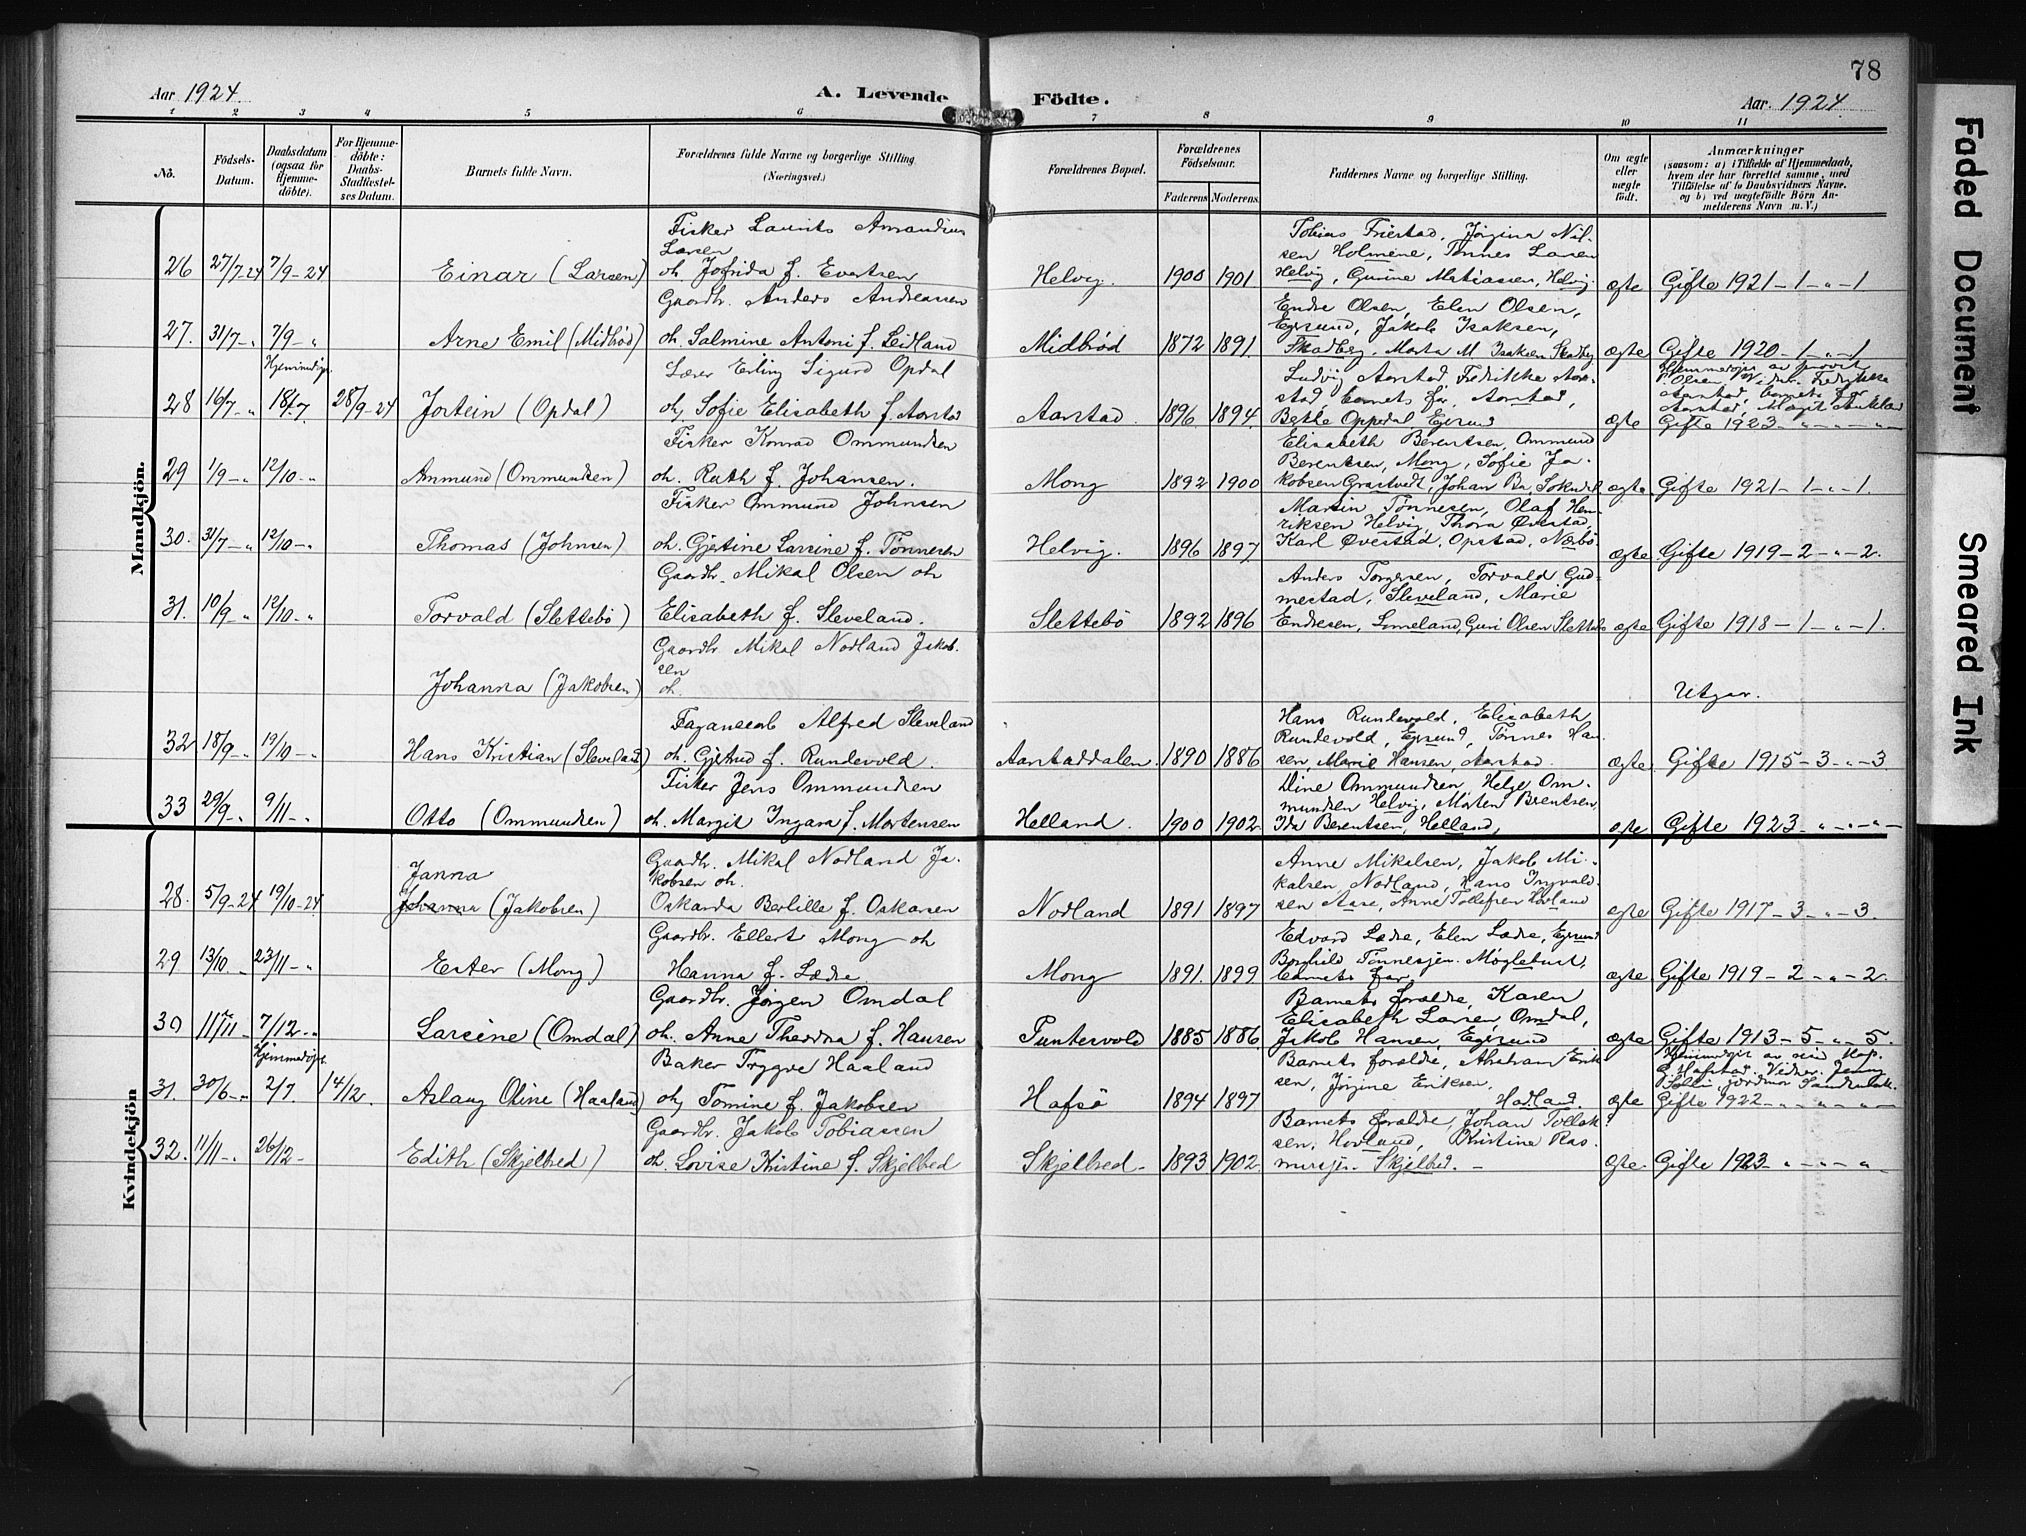 78
Aar 1924.
A. Levende Födte.
Aar 1924.
1 2 3 4 5 6 7 8 9 10 11
No.
Födsels-
Datum.
Daabsdatum
(ogsaa for
Hjemme-
döbte).
For Hjemme-
döbte:
Daabs-
Stadfæstel-
ses Datum.
Barnets fulde Navn.
Forældrenes fulde Navne og borgerlige Stilling
(Næringsvei.)
Forældrenes Bopæl.
Forældrenes
Födselsaar.
Faderens Moderens
Faddernes Navne og borgerlige Stilling.
Om ægte
eller
uægte
födt.
Anmærkninger
(saasom: a) i Tilfælde af Hjemmedaab,
hvem der har forrettet samme, med
Tilföielse af to Daabsvidners Navne.
og b) ved uægtefödte Börn An-
melderens Navn m. V.)
Mandkjön.
26 27/7-24 7/9-24 Einar (Larsen)
Fisker Laurits Amandius
Larsen
oh. Jofrida f. Evertsen
Helvig. 1900 1901
Tobias Friestad, Jørgina Nil-
sen Holmene, Tønnes Larsen
Helvig, Gurine Matiassen, Helvig
ægte Gifte 1921-1-"-1
27. 31/7-" 7/9-" Arne Emil (Midbrød)
Gaardbr. Anders Andreassen
oh. Salmine Antoni f. Leidland
Midbrød 1872 1891
Endre Olsen, Elen Olsen,
Egersund, Jakob Isaksen,
Skadberg, Marta M. Isaksen Skadbg
ægte Gifte 1920-1-"-1
Hjemmedøpt
28 16/7-" 18/7 28/9-24 Jostein (Opdal)
Lærer Erling Sigurd Opdal
oh. Sofie Elisabeth f. Aarstad
Aarstad. 1896 1894.
Ludvig Aarstad, Fredrikke Aar-
stad, barnets far, Aarstad,
Bekke Oppedal Egersund
ægte
Hjemmedøpt av provst
Olsen, Vidn. Fredrikke
Aarstad, barnets far
Aarstad, Margit
Gifte 1923-"-"-"
29 1/9-" 12/10-" Anmund (Ommundsen)
Fisker Konrad Ommundsen
oh. Ruth f. Johansen.
Mong 1892 1900
Elisabeth Berentsen, Ommund
Berentsen, Mong, Sofie Ja-
kobsen Grastvedt, Johan Bø, Sokndal
ægte Gifte 1921-1-"-1.
30. 31/7-" 12/10-" Thomas (Johnsen)
Fisker Ommund Johnsen
oh. Gjertine Larsine f. Tønnesen
Helvig. 1896 1897
Martin Tønnesen, Olaf Hen-
riksen Helvig, Thora Øvestad,
Karl Øvestad, Opstad, Nærbø
ægte Gifte 1919-2-"-2.
31. 10/9-" 12/10-" Torvald (Slettebø)
Gaardbr. Mikal Olsen oh
Elisabeth f. Sleveland.
Slettebö 1892 1896
Anders Torgersen, Torvald Gud-
mestad, Sleveland, Marie
Endresen, Lomeland, Guri Olsen Slettebø
ægte Gifte 1918-1-"-1.
Johanna (Jakobsen)
Gaardbr Mikal Nodland Jakob-
sen
oh.
Utgaar.
32 18/9-" 19/10-" Hans Kristian (Sleveland)
Alfred Sleveland
oh. Gjertrud f. Rundevold.
Aarstaddalen. 1890 1886
Hans Rundevold, Elisabeth
Rundevold, Egersund, Tønnes Han-
sen, Marie Hansen, Aarstad.
ægte. Gifte 1915-3-"-3.
33 29/9-" 9/11-" Otto (Ommundsen)
Fisker Jens Ommundsen
oh. Margit Ingara f. Mortensen
Helland. 1900 1902
Dine Ommundsen, Helge Om-
mundsen Helvig, Morten Berentsen,
Ida Berentsen, Helland,
ægte Gifte 1923-"-"-"
Kvindekjön
28. 5/9-24 19/10-24 Janna
Johanna (Jakobsen)
Gaardbr. Mikal Nodland Ja-
kobsen oh.
Oskarda Berlille f. Oskarsen
Nodland 1891 1897
Anne Mikalsen, Jakob Mi-
kalsen, Nodland, Hans Ingvald-
sen Aase, Anne Tollefsen Hovland
ægte Gifte 1917-3-"-3.
29 13/10-" 23/11-" Ester (Mong)
Gaardbr. Ellert Mong oh
Hanna f. Lædre
Mong 1891. 1899
Edvard Lædre, Elen Lædre, Egersund
Borghild Tønnesjen. Møglebust,
barnets far.
ægte Gifte 1919-2-"-2.
30 11/11- 7/12-" Larsine (Omdal)
Gaardbr. Jørgen Omdal
oh. Anne Theodra f. Hansen
Puntervold 1885 1886
Barnets foraldre, Karen
Elisabeth Larsen Omdal,
Jakob Hansen, Egersund
ægte Gifte 1913-5-"-5.
Hjemmedøpt.
31. 30/6-" 2/7. 14/12. Aslaug Oline (Haaland)
Baker Trygve Haaland
oh. Tomine f. Jakobsen
Hafsö 1894 1897
Barnets foraldre, Abraham Erik-
sen, Jørgine Eriksen,
Hadland.
ægte
Hjemmedøpt av res. kap.
Hafstad. Vidner. Jenny
jordmor
Gifte 1922-"-"-"
32. 11/11-". 26/12- Edith (Skjelbred)
Gaardbr. Jakob Tobiassen
oh. Lovise Kristine f. Skjelbred
Skjelbred. 1893 1902
Barnets foraldre, Johan Tollak-
sen, Hovland, Kristine Ras-
musjen. Skjelbred.-
ægte. Gifte 1923-"-"-"
Faded Document
Smeared Ink